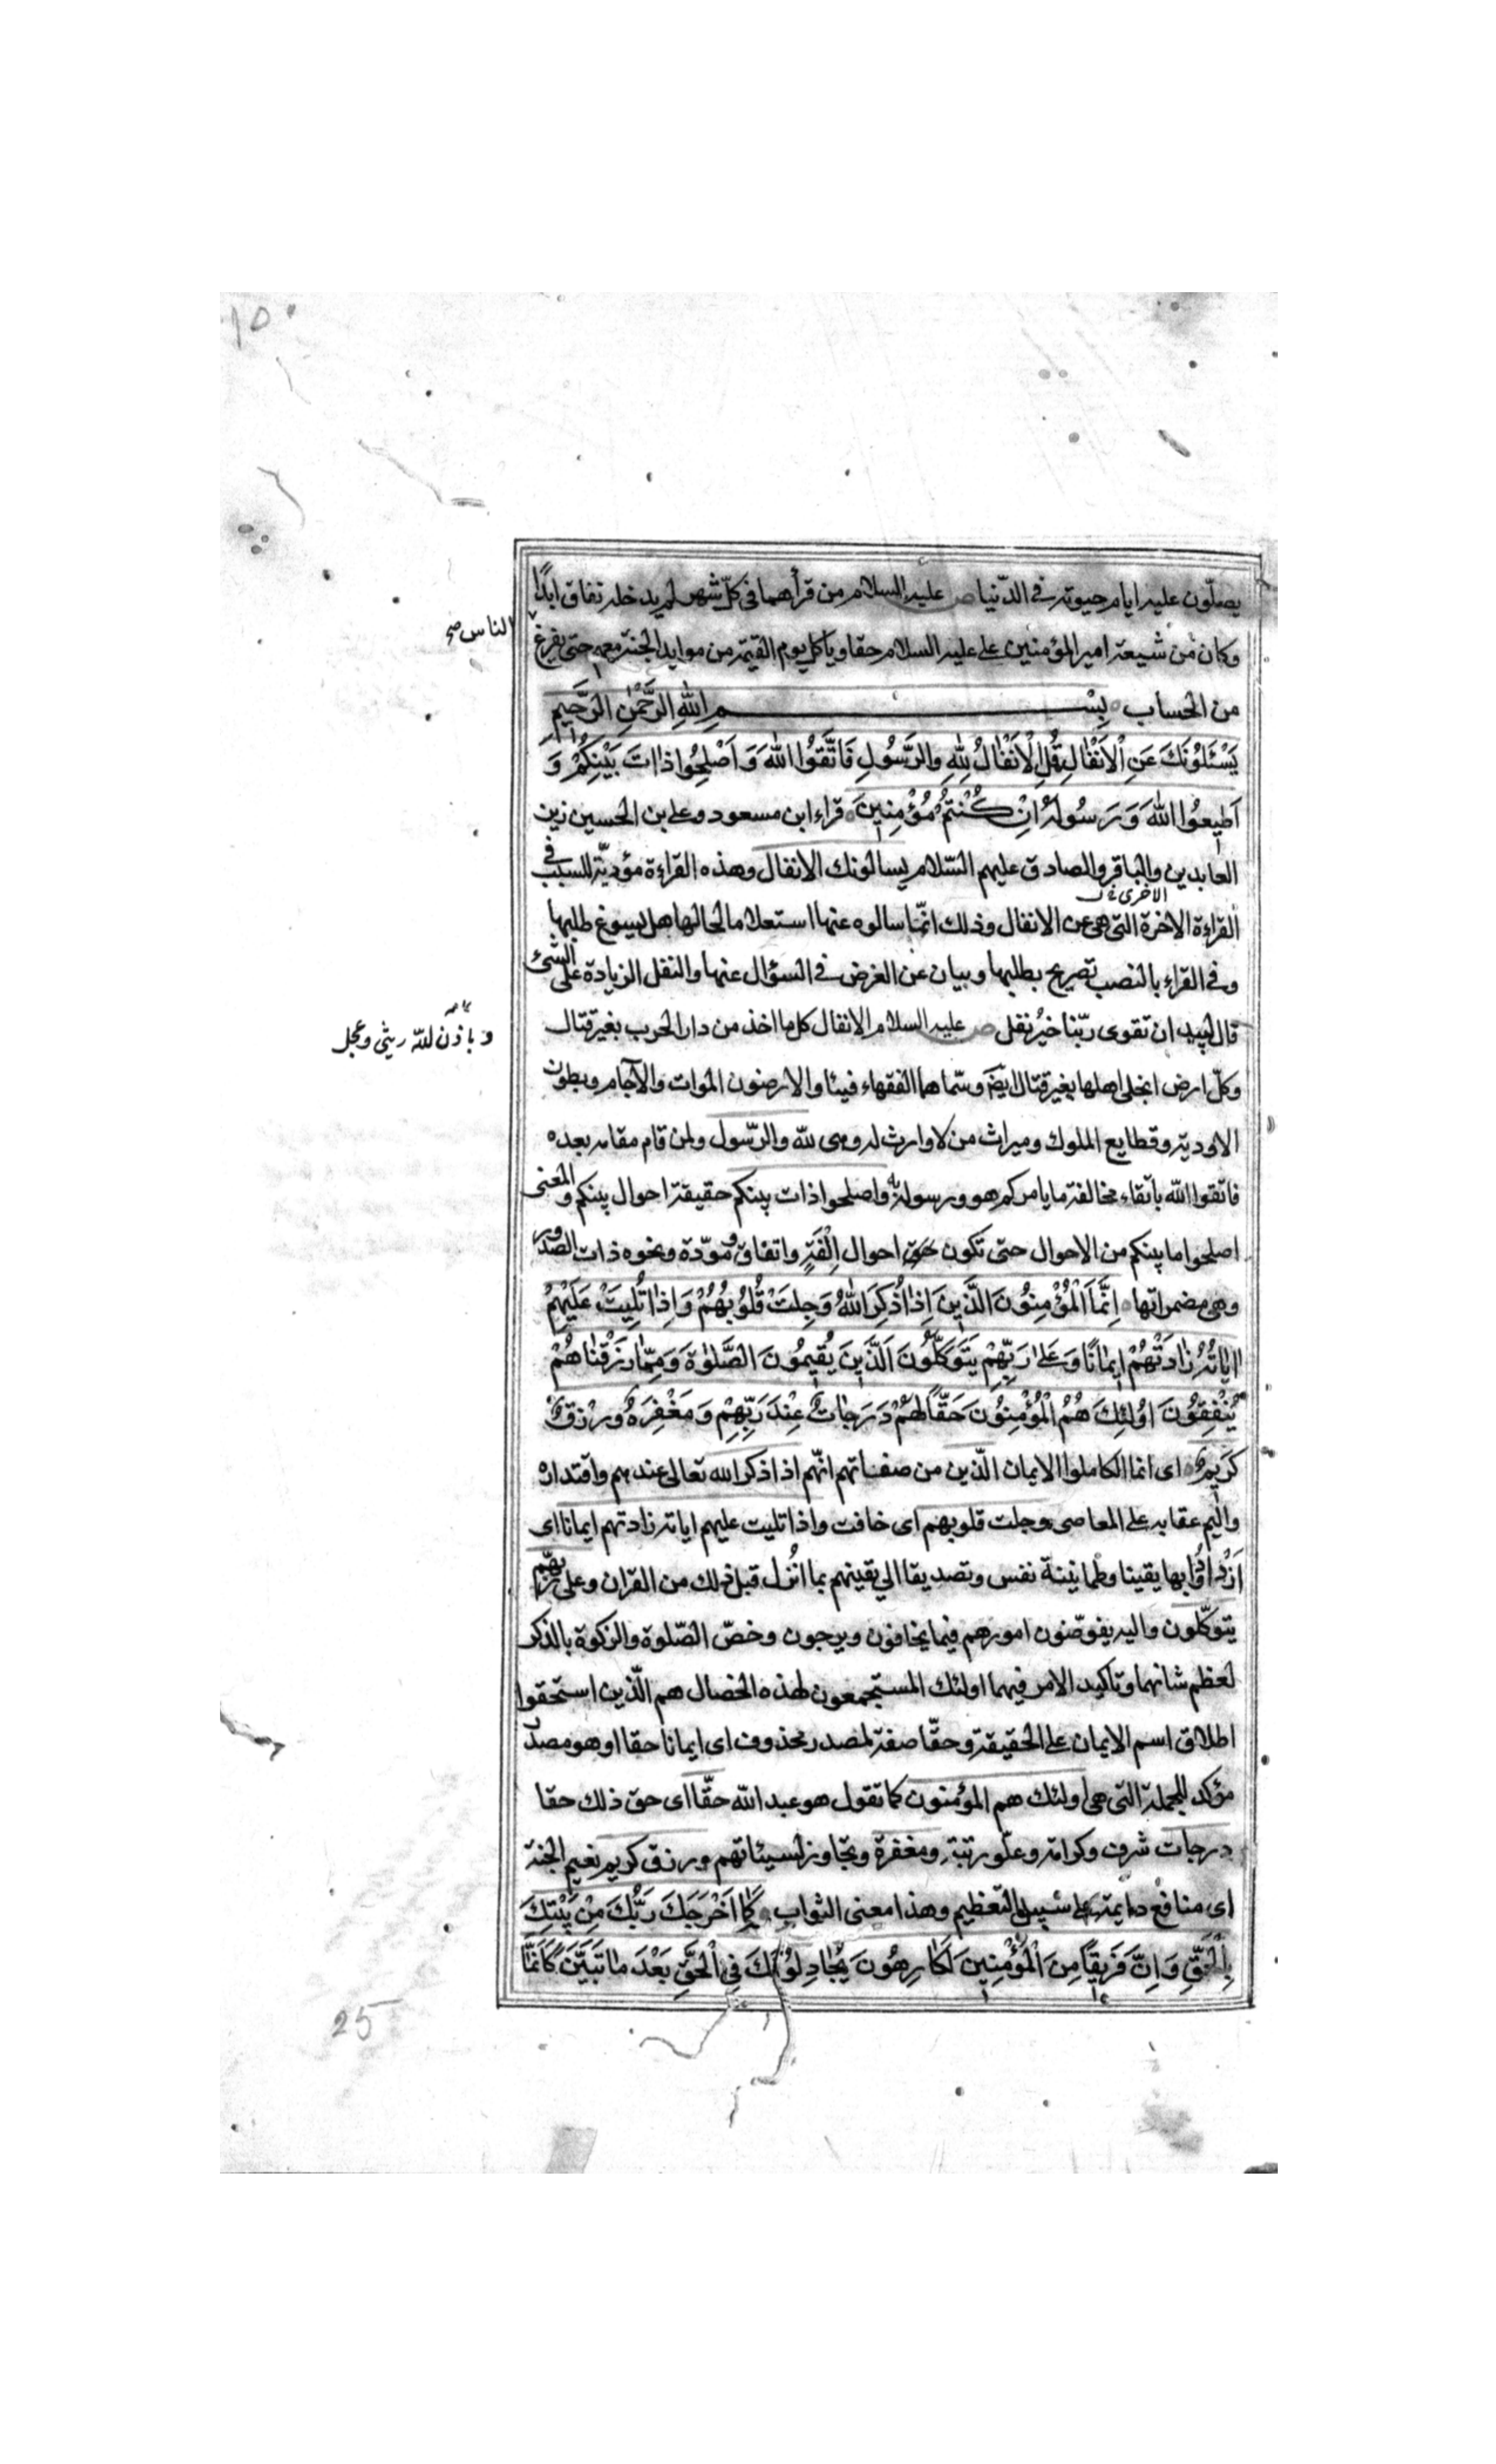 يصلّون عليه ايام حيوته في الدّنيا ص عليه السلام من قرأهما في كلّ شهر لم يدخله نفاق ابدًا
وكان من شيعة امير المؤمنين على عليه السلام حقا وياكل يوم القيمة من موايد الجنة معهم حتى يفرغ
الناس صح
من الحساب بِسْمِ اللّٰهِ الرَّحْمٰنِ الرَّحيمِ
يَسْئَلُونَكَ عَنِ الْاَنْفٰالِ قُلِ الْاَنْفٰالُ لِلّٰهِ والرَّسُولِ فَاتَّقُوا اللّٰهَ وَ اَصْلِحُوا ذاتَ بَيْنِكُمْ وَ
اَطيعُوا اللّٰهَ وَ رَسُولَهُ اِنْ كُنْتُمْ مُؤْمِنينَ قراء ابن مسعود و على بن الحسين زين
العابدين والباقر والصادق عليهم السّلام يسالونك الانفال وهذه القراءة مؤديّة للسبب في
القراءة الاخرة التى هى عن الانفال وذلك انّما سالوه عنها استعلاما لحالها هل يسوغ طلبها
الاخرى خ ل
وفى القراء بالنصب تصريح بطلبها وبيان عن الغرض في السؤال عنها والنفل الزيادة على الشئ
قال لبيد ان تقوى ربّنا خيرُ نفل ص عليه السلام الانفال كل ما اخذ من دار الحرب بغير قتال
و باذن للّه ريثى وعجل
وكلّ ارض انجلى اهلها بغير قتال ايضَ وسمّاها الفقهاء فيئا والارضون الموات والآجام وبطون
الاودية وقطايع الملوك وميراث من لا وارث له وهى للّه والرّسول ولمن قام مقامه بعده
فاتّقوا اللّه باتّقاء مخالفة ما يامركم هو ورسوله به واصلحوا ذات بينكم حقيقة احوال بينكم والمعنى
اصلحوا ما بينكم من الاحوال حتى تكون احوال اِلْفَةٍ واتفاق و مودّة ونحوه ذات الصدور
وهى مضمراتها اِنَّمَا الْمُؤْمِنُونَ الَّذينَ اِذٰا ذُكِرَ اللّٰهُ وَجِلَتْ قُلُوبُهُمْ وَاِذٰا تُلِيَتْ عَلَيْهِمْ
اٰيٰاتُهُ زٰادَتْهُمْ ايمٰانًا وَ عَلىٰ رَبِّهِمْ يَتَوَكَّلُونَ اَلَّذينَ يُقيمُونَ الصَّلٰوةَ وَ مِمّٰا رَزَقْنٰاهُمْ
يُنْفِقُونَ اُولٰئِكَ هُمُ الْمُؤْمِنُونَ حَقًّا لَهُمْ دَرَجٰاتٌ عِنْدَ رَبِّهِمْ وَ مَغْفِرَةٌ وَ رِزْقٌ
كَريمٌ اى انما الكاملوا الايمان الّذين من صفاتهم انّهم اذا ذكر الله تعالى عندهم واقتداره
واليم عقابه على المعاصى وجلت قلوبهم اى خافت واذا تليت عليهم اياته زادتهم ايمانا اى
اَزْدادُوا بها يقينا وطمانينة نفس وتصديقا الى يقينهم بما اُنْزل قبل ذلك من القران وعلى ربّهم
يتوكّلون واليه يفوّضون امورهم فيما يخافون ويرجون وخصّ الصّلوة والزكوة بالذكر
لعظم شانهما وتاكيد الامر فيهما اولئك المستجمعون لهذه الخصال هم الّذين استحقوا
اطلاق اسم الايمان على الحقيقة وحقّا صفة لمصدر محذوف اى ايمانا حقا او هو مصدر
مؤكد للجملة التى هى اولئك هم المؤمنون كما تقول هو عبد اللّه حقّا اى حق ذلك حقا
درجات شرف وكرامة وعلّو رتبة ومغفرة وتجاوز لسيئاتهم ورزق كريم نعيم الجنة
اى منافع دايمة على سبيل التعظيم وهذا معنى الثواب كَمٰا اَخْرَجَكَ رَبُّكَ مِنْ بَيْتِكَ
بِالْحَقِّ وَ اِنَّ فَريقًا مِنَ الْمُؤْمِنينَ لَكٰارِهُونَ يُجٰادِلُونَكَ فِي الْحَقِّ بَعْدَ مٰا تَبَيَّنَ كَاَنَّمٰا
25